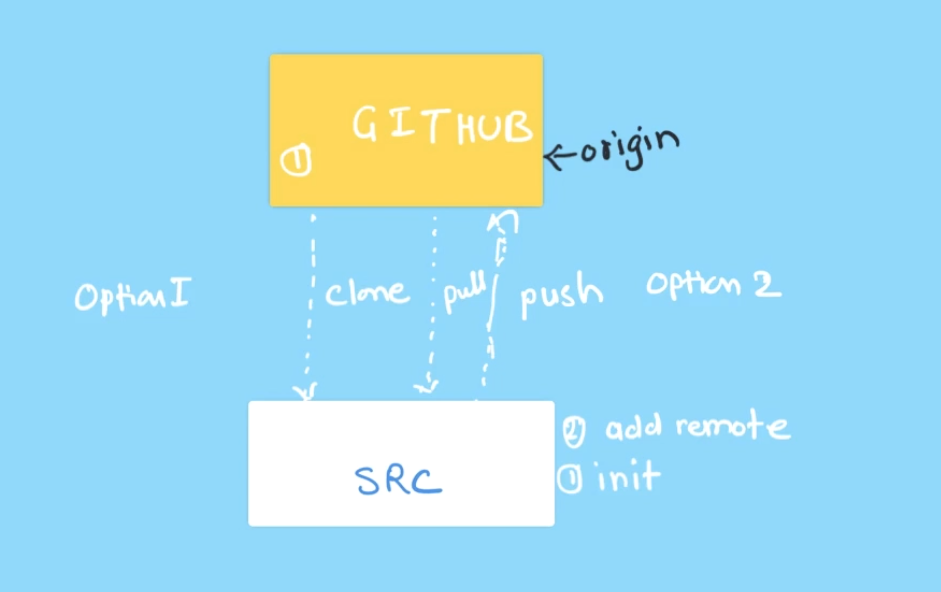 GITHUB
①
←origin
Option I
clone
pull
push
Option 2
② add remote
SRC
① init